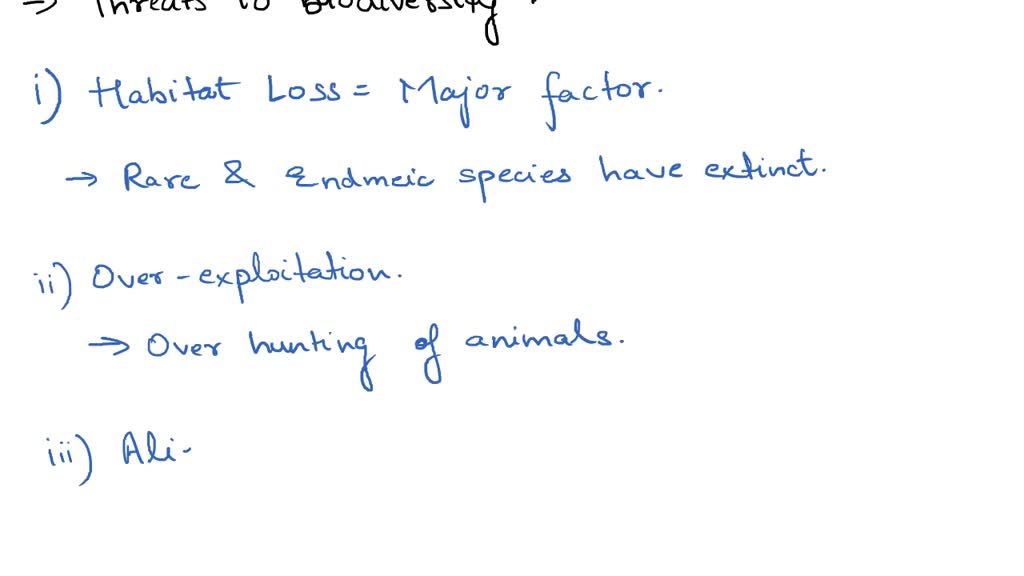 → Threats to Biodiversity
i) Habitat Loss = Major factor.
→ Rare & Endmeic species have extinct.
ii) Over-exploitation.
→ Over hunting of animals.
iii) Ali